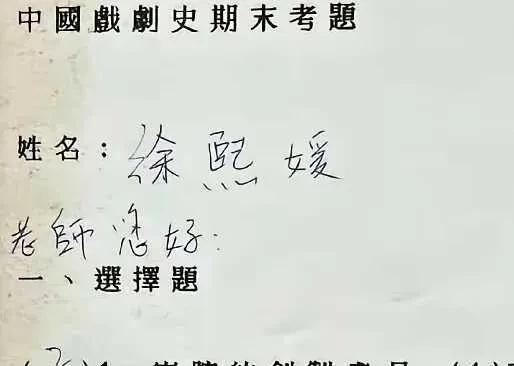 中國戲劇史期末考題
姓名：徐熙媛
老師您好：
一、選擇題